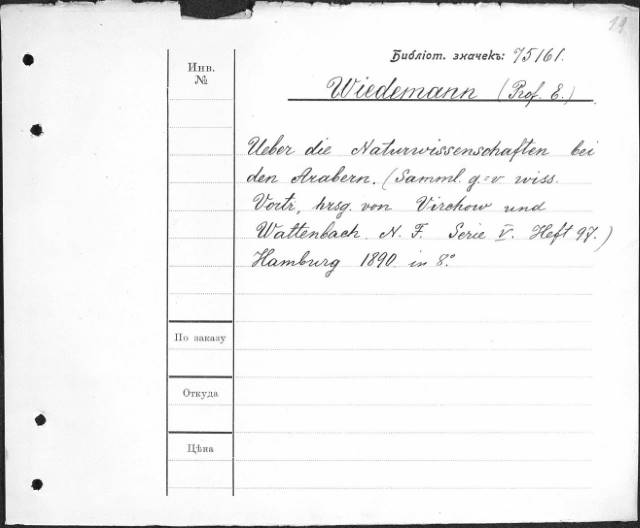 19.
Библіот. значекъ: 75161.
Инв. №
Wiedemann (Prof. E.)
Ueber die Naturwissenschaften bei
den Arabern. (Samml. g.=v. wiss.
Vortr., hrsg. von Virchow und
Wattenbach. N. F. Serie V. Heft 97.)
Hamburg 1890. in 8.°
По заказу
Откуда
Цѣна